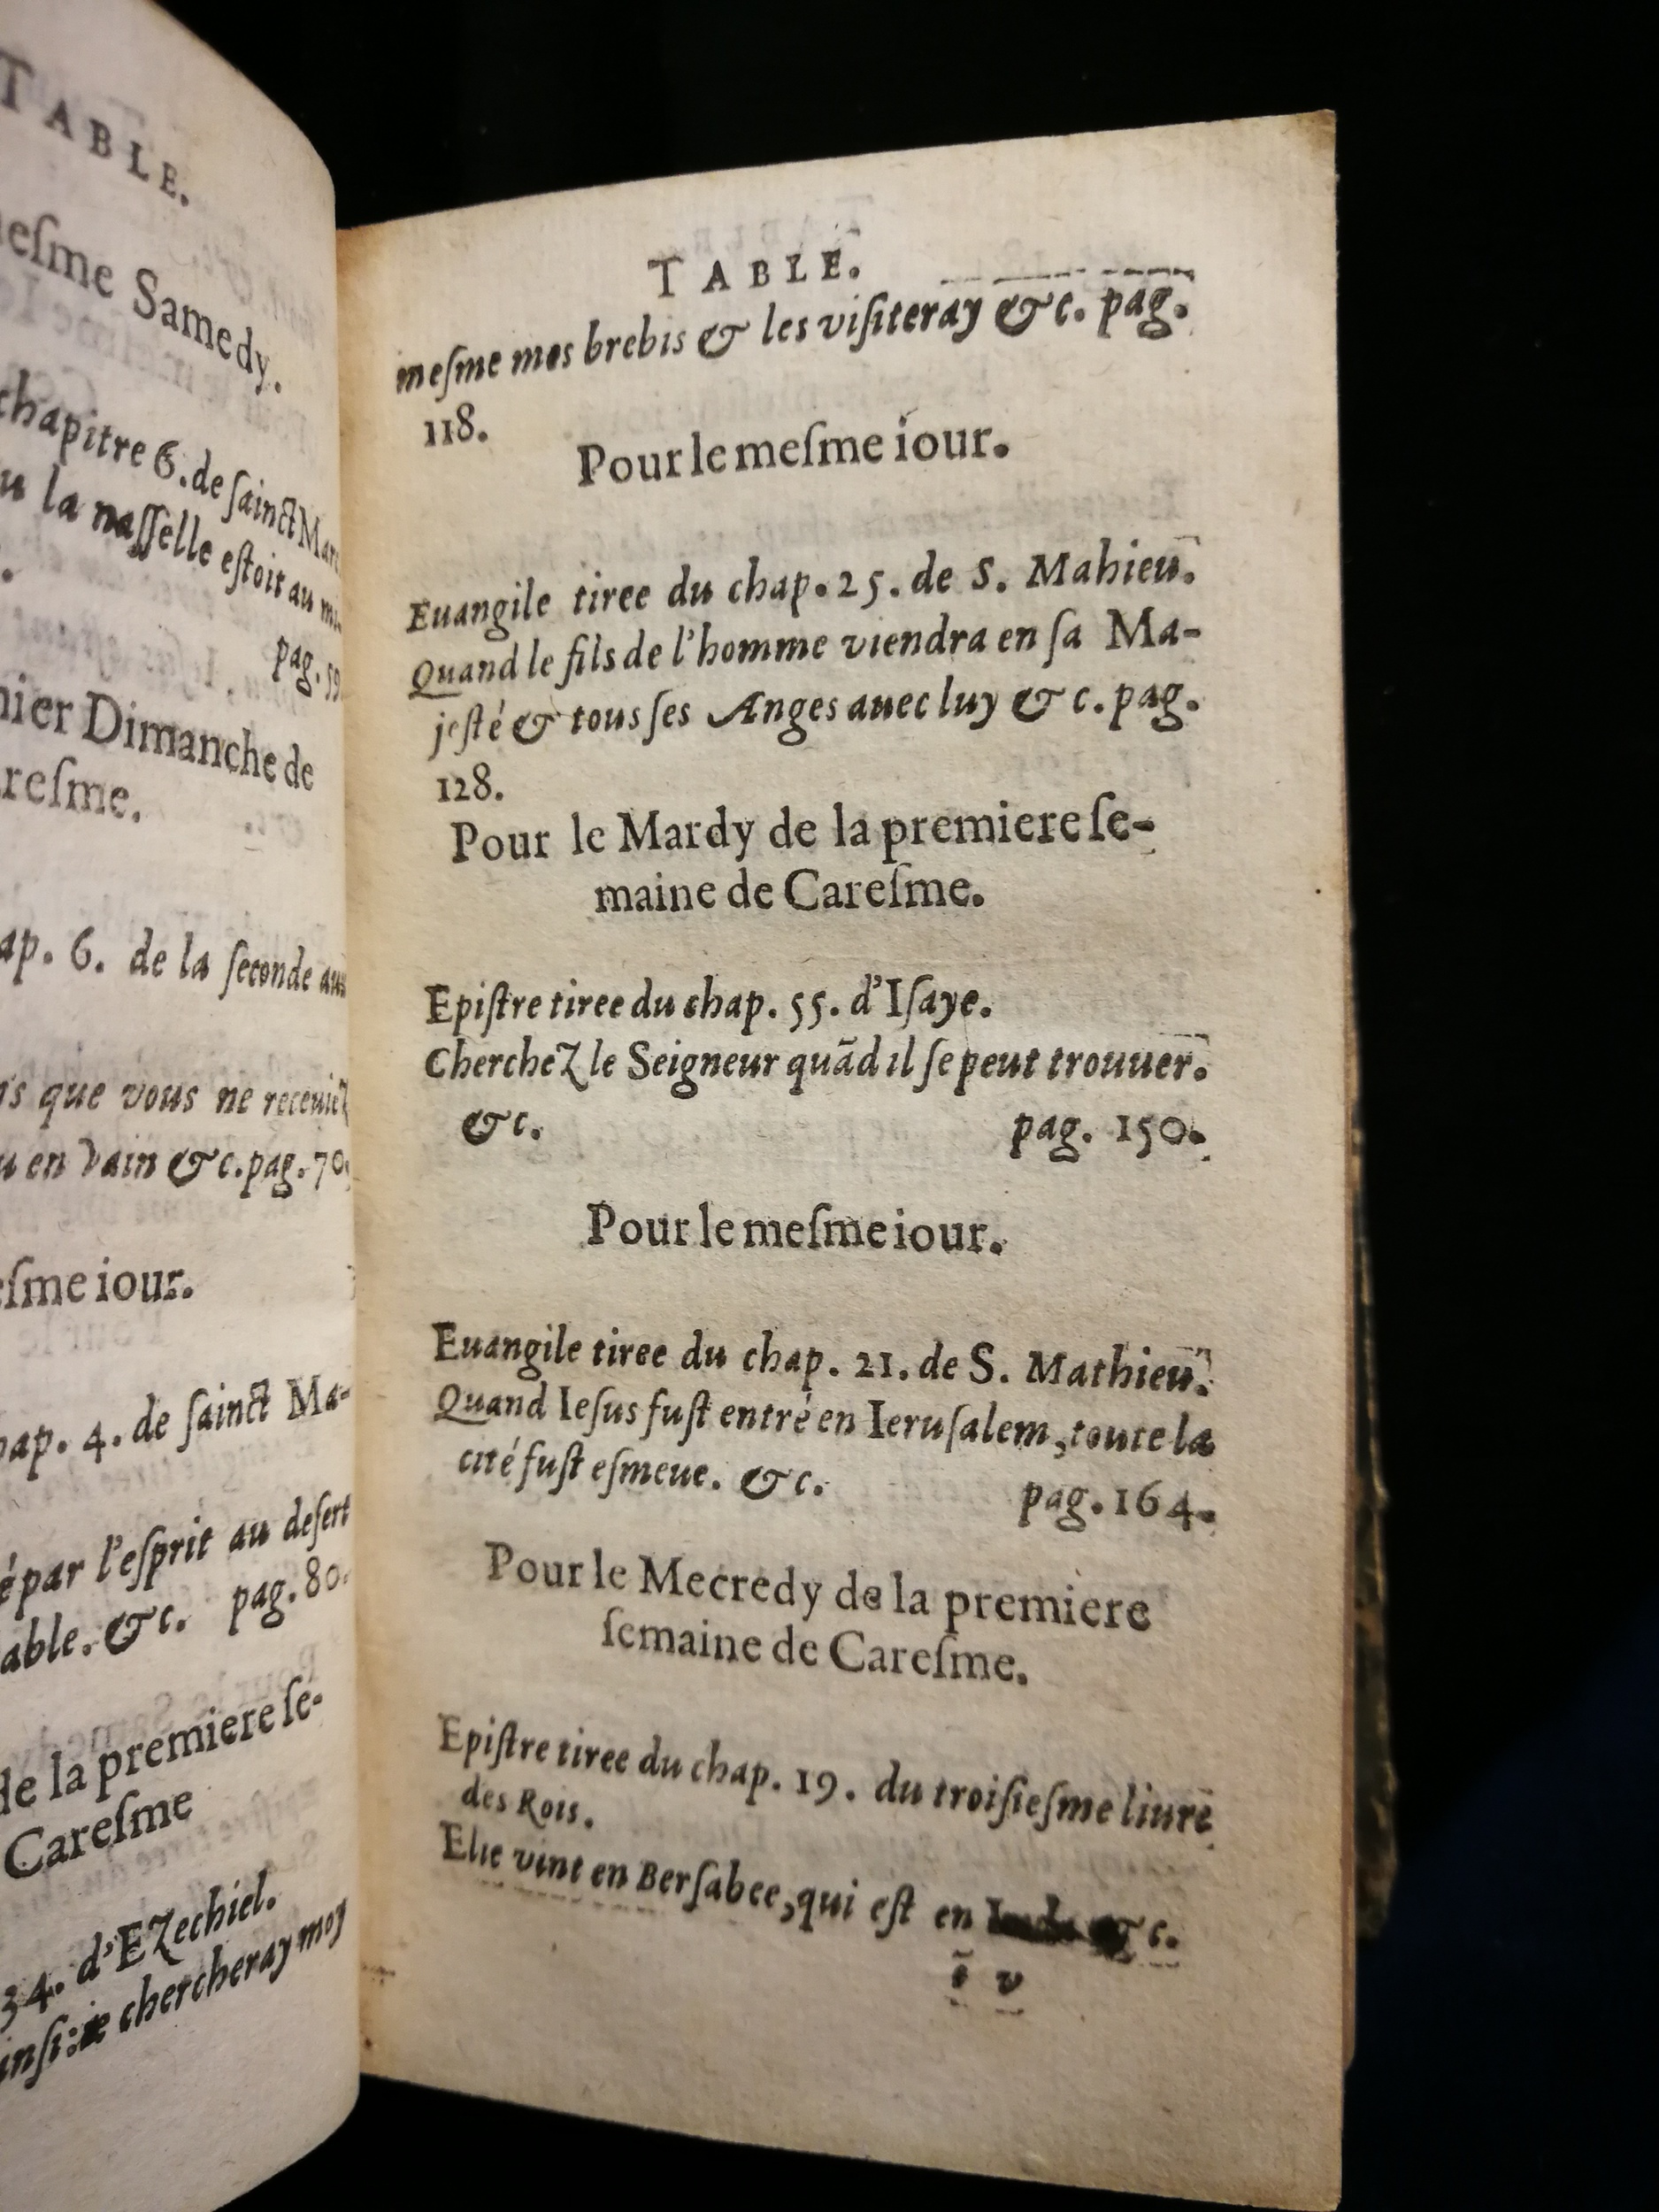 TABLE.
esme Samedy.
chapitre 6. de sainct Mar
u la nasselle estoit au mi-
pag. 59
nier Dimanche de
resme.
ap. 6. de la seconde aux
s que vous ne receuiez
u en vain &c. pag. 70.
esme iour.
hap. 4. de sainct Ma-
é par l'esprit au desert
able. &c. pag. 80.
de la premiere se-
Caresme
34. d'Ezechiel.
insi: ie chercheray moy
TABLE.
mesme mes brebis & les visiteray &c. pag.
118.
Pour le mesme iour.
Euangile tiree du chap. 25. de S. Mahieu.
Quand le fils de l'homme viendra en sa Ma-
jesté & tous ses Anges auec luy &c. pag.
128.
Pour le Mardy de la premiere se-
maine de Caresme.
Epistre tiree du chap. 55. d'Isaye.
Cherchez le Seigneur quãd il se peut trouuer.
&c. pag. 150.
Pour le mesme iour.
Euangile tiree du chap. 21. de S. Mathieu.
Quand Iesus fust entré en Ierusalem, toute la
cité fust esmeue. &c. pag. 164.
Pour le Mecredy de la premiere
semaine de Caresme.
Epistre tiree du chap. 19. du troisiesme liure
des Rois.
Elie vint en Bersabee, qui est en Iuda &c.
ĩ v